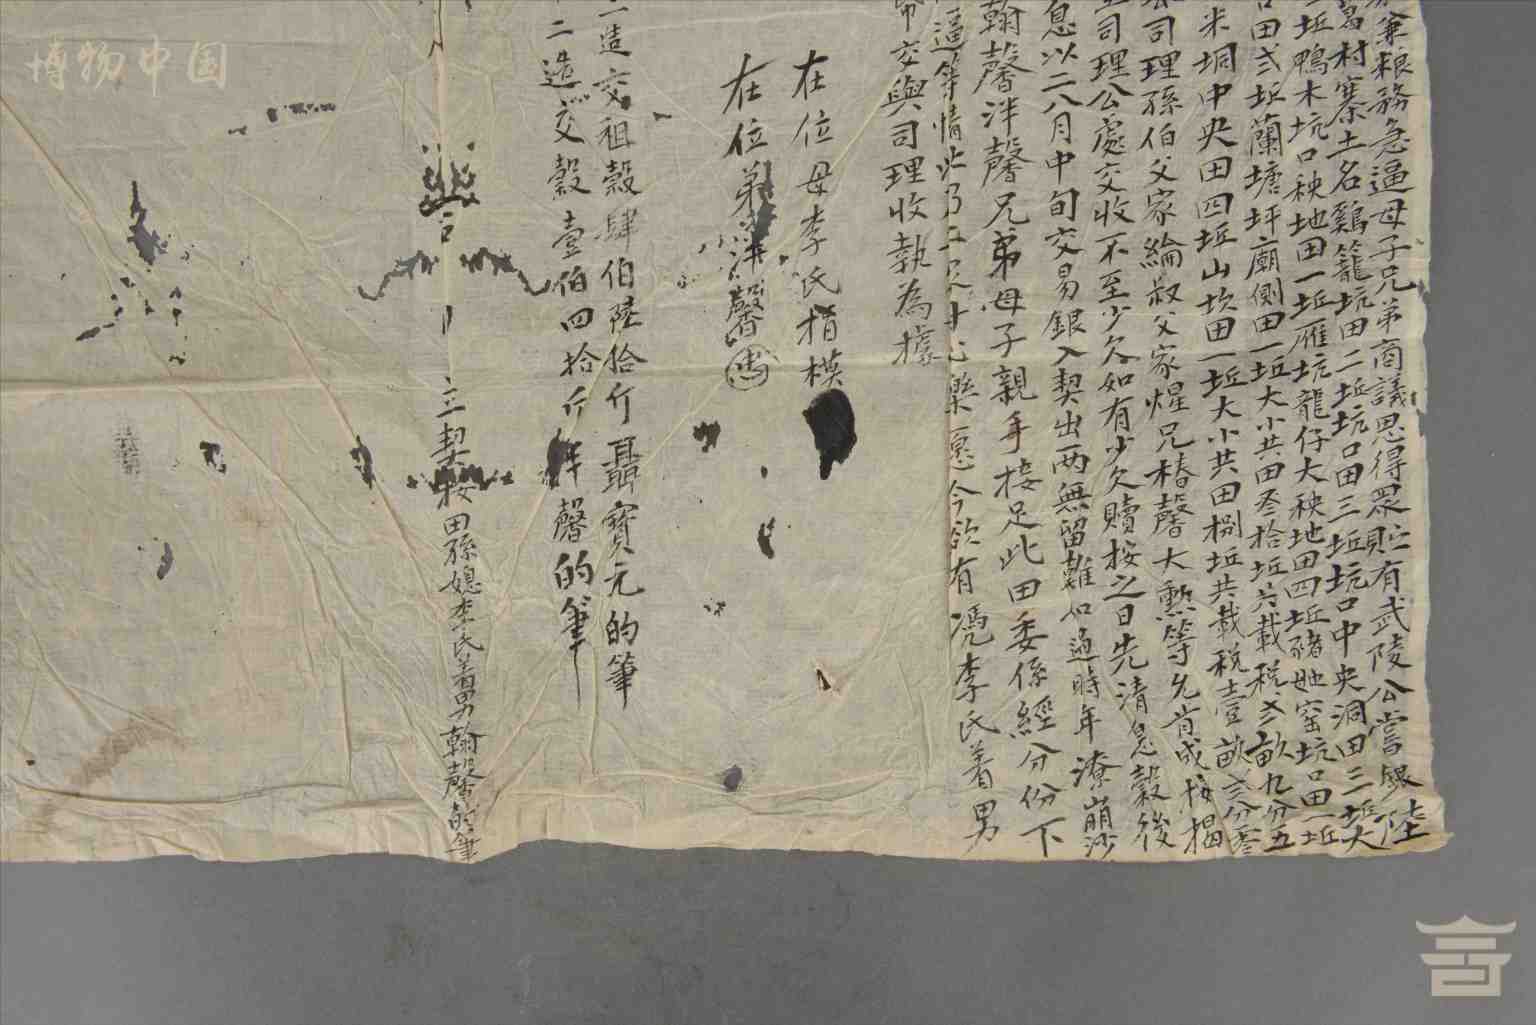 兼粮務急逼母子兄弟商議思得眾貯有武陵公嘗銀陸
葛村寨土名鷄籠坑田二坵坑口田三坵坑口中央洞田三坵大
坵鴨木坑口秧地田一坵雁坑龍仔大秧地田四坵豬乸窑坑口田一坵
田弍坵蘭塘坪廟側田一坵大小共田叁拾坵六載税叁畝九分五
米垌中央田四坵山坎田一坵大小共田捌坵共載税壹畝弍分叁
司理孫伯父家綸叔父家煋兄椿馨大勲等允肯成按揭
司理公處交收不至少欠如有少欠贖按之日先清息穀後
息以二八月中旬交易銀入契出两無留難如過時年潦崩沙
翰馨泮馨兄弟母子親手接足此田委係經分份下
逼等情此乃二家甘心樂愿今欲有憑李氏着男
帋交與司理收執為據
在位母李氏指模
在位弟泮馨
二造交租穀肆伯陸拾斤聶寶元的筆
二造交穀壹伯四拾斤泮馨的筆
立契按田孫媳李氏着男翰馨的筆
博物中国